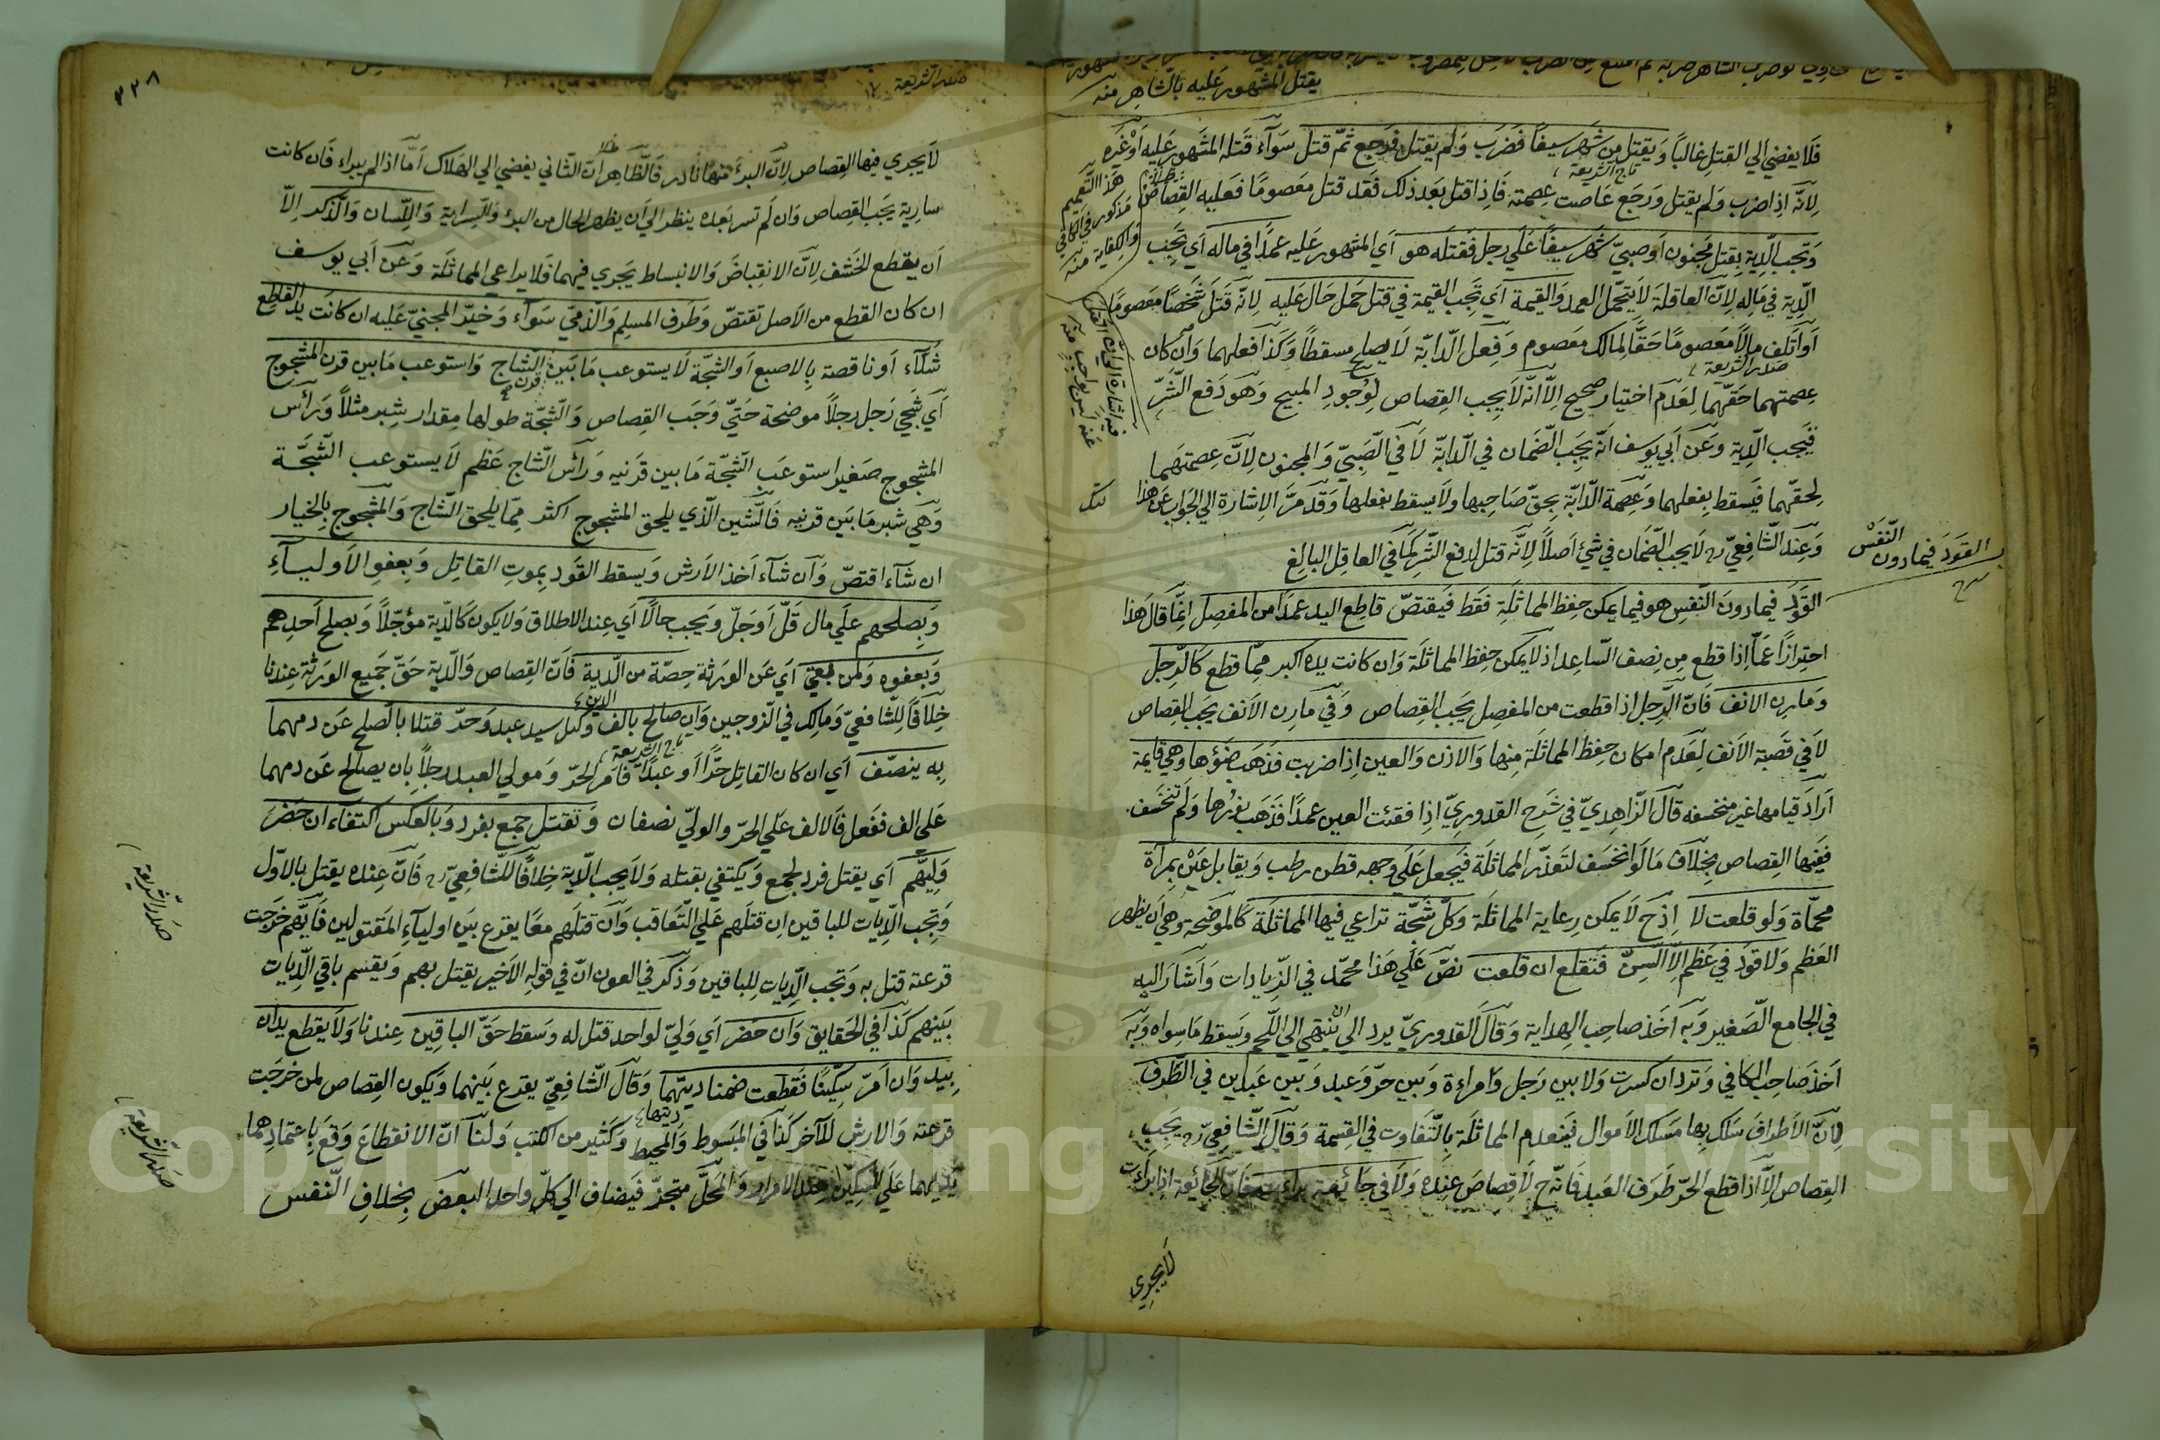 يقتل المشهور عليه بالشاهر منه
فلا يفضي الي القتل غالبا ويقتل من شهر سيفا فضرب ولم يقتل فرجع ثم قتل سوآء قتله المشهور عليه أو غيره
تاج الشريعة
لانه اذا ضرب ولم يقتل ورجع عادت عصمته فاذا قتل بعد ذلك فقد قتل معصوما فعليه القصاص
هذا التعميم
مذكور في الكافي
والكفاية منه
وتجب الدية بقتل مجنون أو صبي شهر سيفا علي رجل فقتله هو أي المشهور عليه عمدا في ماله أي تجب
الدية في ماله لان العاقلة لا يتحمل العمد والقيمة أي تجب القيمة في قتل جمل حال عليه لانه قتل شخصا معصوما
أو أتلف مالا معصوما حقا لمالك معصوم وفعل الدابة لا يصلح مسقطا وكذا فعلهما وان كان
صدر الشريعة
عصمتهما حقهما لعدم اختيار صحيح الا أنه لا يجب القصاص لوجود المبيح وهو دفع الشر
فيجب الدية وعن أبي يوسف أنه يجب الضمان في الدابة لا في الصبي والمجنون لان عصمتهما
لحقهما فيسقط بفعلهما وعصمة الدابة بحق صاحبها ولا يسقط بفعلها وقد مر الاشارة الي الجواب عن هذا
وعند الشافعي رح لا يجب الضمان في شئ أصلا لانه قتل لدفع الشر كما في العاقل البالغ
القود فيما دون النفس
القود فيما دون النفس هو فيما يمكن حفظ المماثلة فقط فيقتص قاطع اليد عمدا من المفصل انما قال هذا
احترازا عما اذا قطع من نصف الساعد اذ لا يمكن حفظ المماثلة وان كانت يده اكبر مما قطع كالرجل
ومارن الانف فان الرجل اذا قطعت من المفصل يجب القصاص وفي مارن الأنف يجب القصاص
لا في قصبة الأنف لعدم امكان حفظ المماثلة منها والاذن والعين اذا ضربت فذهب ضوؤها وهي قايمة
أراد قيامها غير منخسفه قال الزاهدي في شرح القدوري اذا فقئت العين عمدا فذهب نورها ولم تنخسف
ففيها القصاص بخلاف ما لو انخسف لتعذر المماثلة فيجعل علي وجهه قطن رطب ويقابل عين بمرآة
محماة ولو قلعت لا اذ ح لا يمكن رعاية المماثلة وكل شجة تراعي فيها المماثلة كالموضحة وهي أن يظهر
العظم ولا قود في عظم الا السن فتقلع ان قلعت نص علي هذا محمد في الزيادات وأشار اليه
في الجامع الصغير وبه أخذ صاحب الهداية وقال القدوري يبرد الي ان ينتهي الي اللحم ويسقط ما سواه وبه
أخذ صاحب الكافي وتبرد ان كسرت ولا بين رجل وامراءة وبين حر وعبد وبين عبدين في الطرف
لان الأطراف سلك بها مسلك الأموال فينعدم المماثلة بالتفاوت في القيمة وقال الشافعي رح يجب
القصاص الا اذا قطع الحر طرف العبد فانه ح لا قصاص عنده ولا في جائفة براءت فان الجائفة اذا برأت
لا يجري
٣٣٨
صدر الشريعة
لا يجري فيها القصاص لان البرء منها نادر فالظاهر أن الثاني يفضي الي الهلاك أما اذا لم يبراء فان كانت
سارية يجب القصاص وان لم تسر بعده ينظر الي أن يظهر الحال من البرء والسراية واللسان والذكر الا
أن يقطع الحشف لان الانقباض والانبساط يجري فيهما فلا يراعي المماثلة وعن أبي يوسف
ان كان القطع من الأصل تقتص وطرف المسلم والذمي سوآء وخير المجني عليه ان كانت يد القاطع
شلآء أو ناقصة بالاصبع أو الشجة لا يستوعب ما بين قرني الشاج واستوعب ما بين قرن المشجوج
أي شج رجل رجلا موضحة حتي وجب القصاص والشجة طولها مقدار شبر مثلا ورأس
المشجوج صغير استوعب الشجة ما بين قرنيه ورأس الشاج عظم لا يستوعب الشجة
وهي شبر ما بين قرنيه فالشين الذي يلحق المشجوج اكثر مما يلحق الشاج والمشجوج بالخيار
ان شآء اقتص وان شآء أخذ الأرش ويسقط القود بموت القاتل وبعفو الأوليآء
وبصلحهم علي مال قل أو جل ويجب حالا أي عند الاطلاق ولا يكون كالدية مؤجلا وبصلح أحدهم
وبعفوه ولمن بقي أي عن الورثة حصة من الدية فان القصاص والدية حق جميع الورثة عندنا
خلافا للشافعي ومالك في الزوجين وان صالح بالف وكيل سيد عبد وحر قتلا بالصلح عن دمهما
تاج الشريعة
به ينصف أي ان كان القاتل حرا أو عبدا فأمر الحر ومولي العبد رجلا بان يصالح عن دمهما
علي الف ففعل فالالف علي الحر والولي نصفان وتقتل جمع بفرد وبالعكس اكتفاء ان حضر
وليهم أي يقتل فرد لجمع ويكتفي بقتله ولا يجب الدية خلافا للشافعي رح فان عنده يقتل بالاول
صدر الشريعة
وتجب الديات للباقين ان قتلهم علي التعاقب وان قتلهم معا يقرع بين اوليآء المقتولين فأيهم خرجت
قرعته قتل به وتجب الديات للباقين وذكر في العون ان في قوله الأخير يقتل بهم ويقسم باقي الديات
بينهم كذا في الحقايق وان حضر أي ولي لواحد قتل له وسقط حق الباقين عندنا ولا يقطع يدان
بيد وان أمر سكينا فقطعت ضمنا ديتها وقال الشافعي يقرع بينهما ويكون القصاص لمن خرجت
صدر الشريعة
قرعته والارش للآخر كذا في المبسوط والمحيط وكثير من الكتب ولنا ان الانقطاع وقع باعتمادهما
يديهما علي السكين عند الامرار والمحل متجز فيضاف الي كل واحد البعض بخلاف النفس